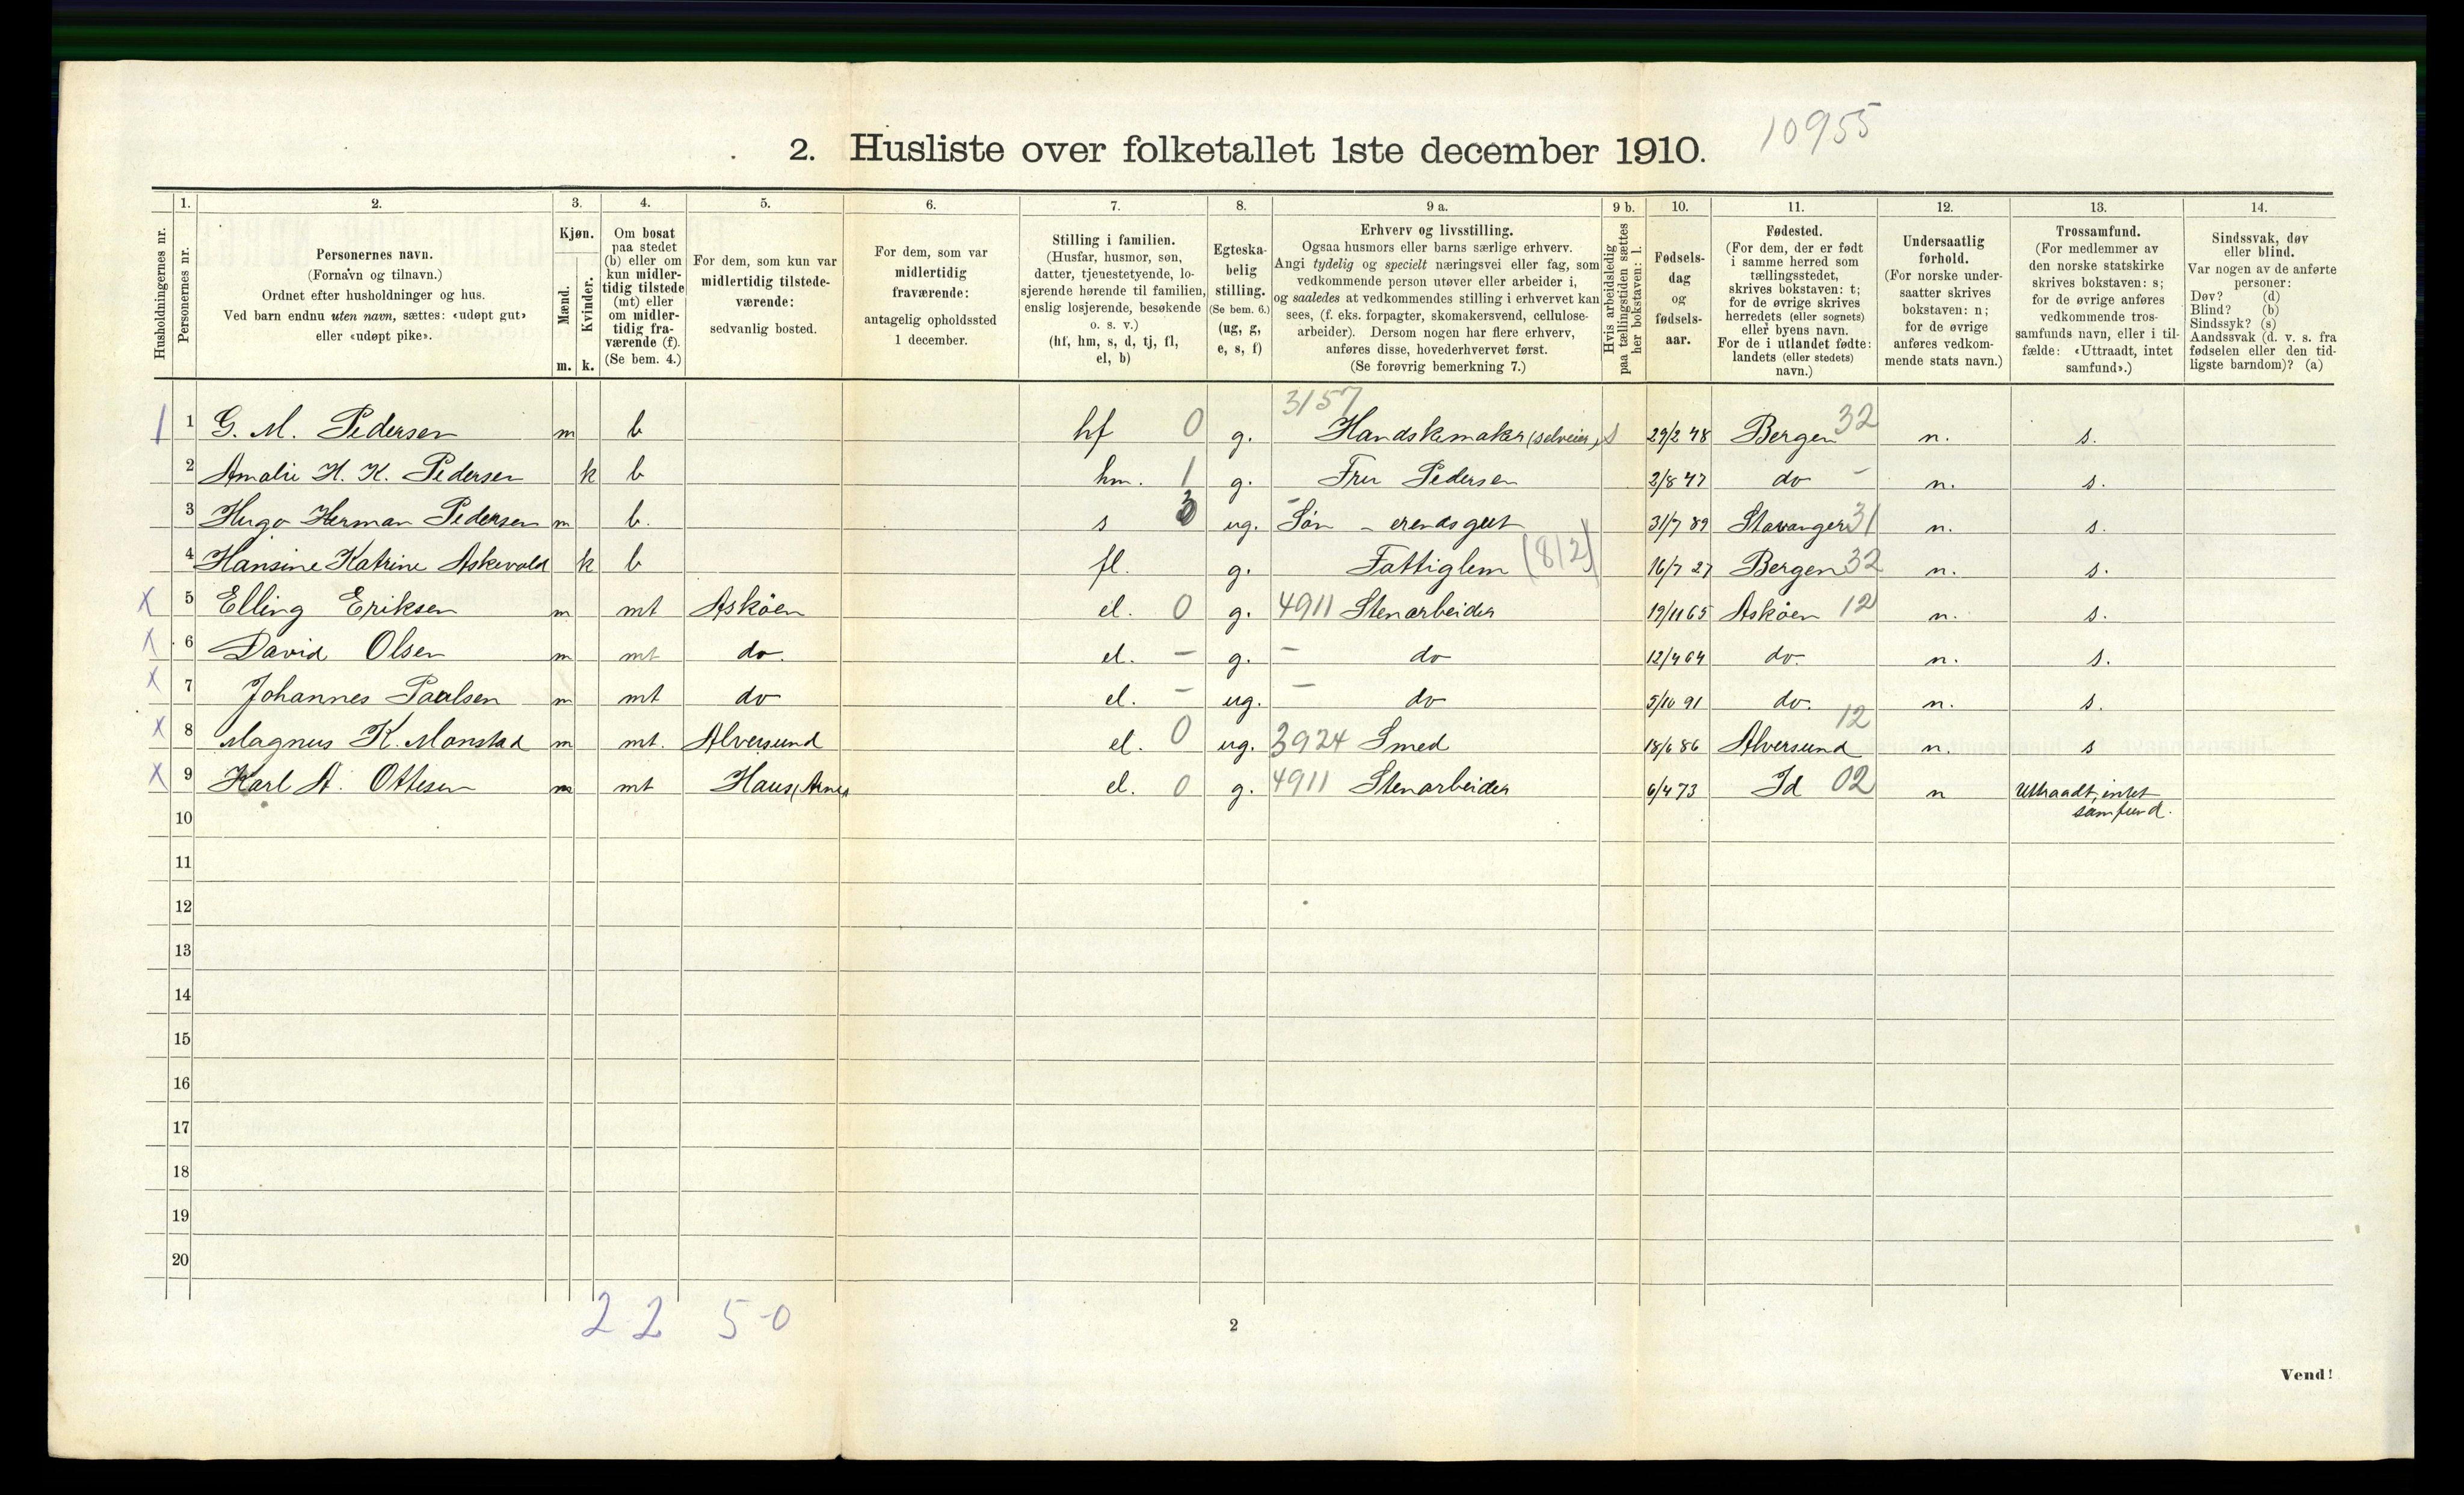 10955
2. Husliste over folketallet 1ste december 1910.
1. 2. 3. 4. 5. 6. 7. 8. 9 a. 9 b. 10. 11. 12. 13. 14.
Husholdningernes nr.
Personernes nr.
Personernes navn.
(Fornavn og tilnavn.)
Ordnet efter husholdninger og hus.
Ved barn endnu uten navn, sættes: «udøpt gut»
eller «udøpt pike».
Kjøn.
Mænd.
Kvinder.
m. k.
Om bosat
paa stedet
(b) eller om
kun midler-
tidig tilstede
(mt) eller
om midler-
tidig fra-
værende (f).
(Se bem. 4.)
For dem, som kun var
midlertidig tilstede-
værende:
sedvanlig bosted.
For dem, som var
midlertidig
fraværende:
antagelig opholdssted
1 december.
Stilling i familien.
(Husfar, husmor, søn,
datter, tjenestetyende, lo-
sjerende hørende til familien,
enslig losjerende, besøkende
o. s. v.)
(hf, hm, s, d, tj, fl,
el, b)
Egteska-
belig
stilling.
(Se bem. 6.)
(ug, g,
e, s, f)
Erhverv og livsstilling.
Ogsaa husmors eller barns særlige erhverv.
Angi tydelig og specielt næringsvei eller fag, som
vedkommende person utøver eller arbeider i,
og saaledes at vedkommendes stilling i erhvervet kan
sees, (f. eks. forpagter, skomakersvend, cellulose-
arbeider). Dersom nogen har flere erhverv,
anføres disse, hovederhvervet først.
(Se forøvrig bemerkning 7.)
Hvis arbeidsledig
paa tællingstiden sættes
her bokstaven: l.
Fødsels-
dag
og
fødsels-
aar.
Fødested.
(For dem, der er født
i samme herred som
tællingsstedet,
skrives bokstaven: t;
for de øvrige skrives
herredets (eller sognets)
eller byens navn.
For de i utlandet fødte:
landets (eller stedets)
navn.)
Undersaatlig
forhold.
(For norske under-
saatter skrives
bokstaven: n;
for de øvrige
anføres vedkom-
mende stats navn.)
Trossamfund.
(For medlemmer av
den norske statskirke
skrives bokstaven: s;
for de øvrige anføres
vedkommende tros-
samfunds navn, eller i til-
fælde: «Uttraadt, intet
samfund».)
Sindssvak, døv
eller blind.
Var nogen av de anførte
personer:
Døv? (d)
Blind? (b)
Sindssyk? (s)
Aandssvak (d. v. s. fra
fødselen eller den tid-
ligste barndom)? (a)
3157
1 1 G. M. Pedersen m b hf 0 g. Handskemaker (selveier) s 29/2 48 Bergen 32 n. s.
2 Amalie H. K. Pedersen k b hm. 1 g. Fru Pedersen 2/8 47 do - n. s.
3 Hugo Herman Pedersen m b. s 3 ug. Søn - erendsgut 31/7 89 Stavanger 31 n. s.
4 Hansine Katrine Askevold k b fl. g. Fattiglem (812) 16/7 27 Bergen 32 n. s.
X 5 Elling Eriksen m mt Askøen el. 0 g. 4911 Stenarbeider 19/11 65 Askøen 12 n. s.
X 6 David Olsen m mt do. el. - g. - do 12/4 64 do. n. s.
X 7 Johannes Paulsen m mt do el. - ug. - do 5/10 91 do. n. s.
X 8 Magnus K. Monstad m mt. Alversund el. 0 ug. 3924 Smed 18/6 86 Alversund 12 n. s
X 9 Karl A. Ottesen m mt Haus (Arne) el. 0 g. 4911 Stenarbeider 6/4 73 Id 02 n Uttraadt, intet
samfund.
10
11
12
13
14
15
16
17
18
19
20
2 2 5-0
2
Vend!